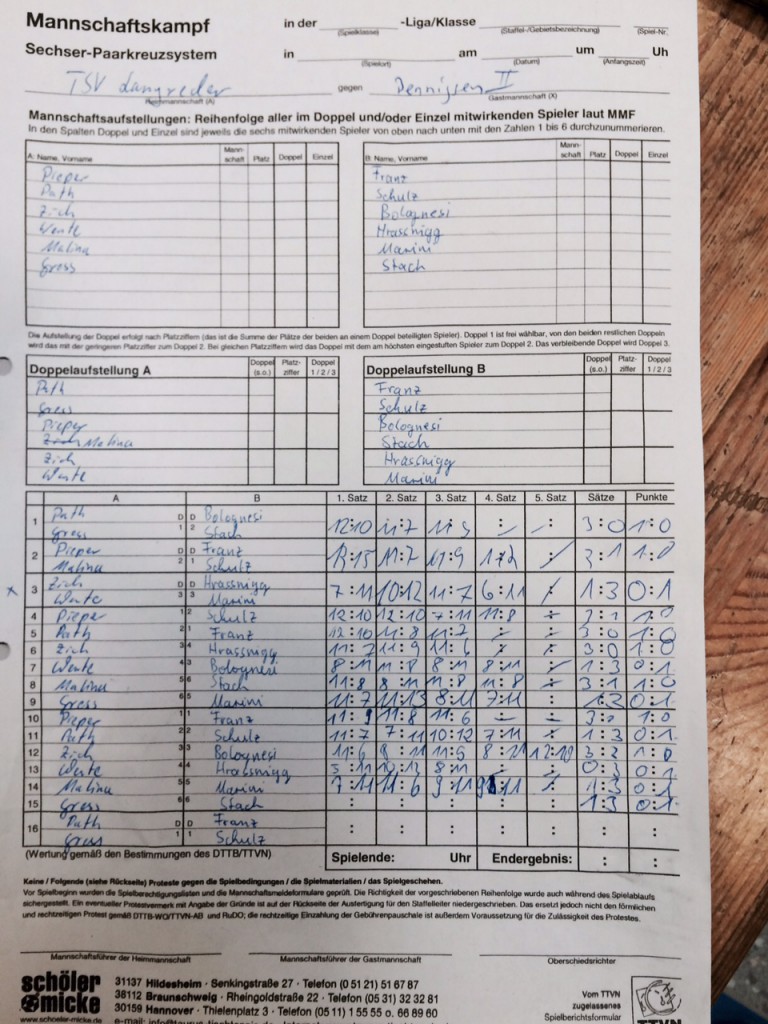 Mannschaftskampf
in der -Liga/Klasse
(Spielklasse) (Staffel-/Gebietsbezeichnung) (Spiel-Nr.
Sechser-Paarkreuzsystem
in am um Uh
(Spielort) (Datum) (Anfangszeit)
TSV Langreder gegen Dennigsen II
Heimmannschaft (A) Gastmannschaft (X)
Mannschaftsaufstellungen: Reihenfolge aller im Doppel und/oder Einzel mitwirkenden Spieler laut MMF
In den Spalten Doppel und Einzel sind jeweils die sechs mitwirkenden Spieler von oben nach unten mit den Zahlen 1 bis 6 durchzunummerieren.
A: Name, Vorname Mann-schaft Platz Doppel Einzel B: Name, Vorname Mann-schaft Platz Doppel Einzel
Pieper Franz
Path Schulz
Zich Bolognesi
Wente Hrassnigg
Malina Marini
Gress Stach
Die Aufstellung der Doppel erfolgt nach Platzziffern (das ist die Summe der Plätze der beiden an einem Doppel beteiligten Spieler). Doppel 1 ist frei wählbar, von den beiden restlichen Doppeln
wird das mit der geringeren Platzziffer zum Doppel 2. Bei gleichen Platzziffern wird das Doppel mit dem am höchsten eingestuften Spieler zum Doppel 2. Das verbleibende Doppel wird Doppel 3.
Doppelaufstellung A Doppel (s.o.) Platz-ziffer Doppel 1/2/3 Doppelaufstellung B Doppel (s.o.) Platz-ziffer Doppel 1/2/3
Path Franz
Gress Schulz
Pieper Bolognesi
Zich Malina Stach
Zich Hrassnigg
Wente Marini
A B 1. Satz 2. Satz 3. Satz 4. Satz 5. Satz Sätze Punkte
1 Path D D Bolognesi
Gress 1 2 Stach 12:10 11:7 11:9 : : 3:0 1:0
2 Pieper D D Franz
Malina 2 1 Schulz 11:7 11:9 3:1 1:0
x 3 Zich D D Hrassnigg
Wente 3 3 Marini 7:11 10:12 11:7 6:11 1:3 0:1
4 Pieper 1 2 Schulz 12:10 12:10 7:11 11:8 : 3:1 1:0
5 Path 2 1 Franz 12:10 11:8 11:7 : : 3:0 1:0
6 Zich 3 4 Hrassnigg 11:7 11:9 11:6 : : 3:0 1:0
7 Wente 4 3 Bolognesi 8:11 11:8 8:11 8:11 1:3 0:1
8 Malina 5 6 Stach 11:8 8:11 11:8 11:8 : 3:1 1:0
9 Gress 6 5 Marini 11:7 11:13 8:11 7:11 : 1:3 0:1
10 Pieper 1 1 Franz 11:9 11:8 11:6 : : 3:0 1:0
11 Path 2 2 Schulz 11:7 7:11 10:12 7:11 : 1:3 0:1
12 Zich 3 3 Bolognesi 11:6 9:11 11:5 8:11 12:10 3:2 1:0
13 Wente 4 4 Hrassnigg 5:11 8:11 0:3 0:1
14 Malina 5 5 Marini 7:11 11:6 9:11 1:3 0:1
15 Gress 6 6 Stach : : : : : 1:3 0:1
16 Path D D Franz
Gress 1 1 Schulz : : : : : : :
(Wertung gemäß den Bestimmungen des DTTB/TTVN) Spielende: Uhr Endergebnis: : :
Keine / Folgende (siehe Rückseite) Proteste gegen die Spielbedingungen / die Spielmaterialien / das Spielgeschehen.
Vor Spielbeginn wurden die Spielberechtigungslisten und die Mannschaftsmeldeformulare geprüft. Die Richtigkeit der vorgeschriebenen Reihenfolge wurde auch während des Spielablaufs
sichergestellt. Ein eventueller Protestvermerk mit Angabe der Gründe ist auf der Rückseite der Ausfertigung für den Staffelleiter niedergeschrieben. Das ersetzt jedoch nicht den förmlichen
und rechtzeitigen Protest gemäß DTTB-WO/TTVN-AB und RuDO; die rechtzeitige Einzahlung der Gebührenpauschale ist außerdem Voraussetzung für die Zulässigkeit des Protestes.
Mannschaftsführer der Heimmannschaft Mannschaftsführer der Gastmannschaft Oberschiedsrichter
schöler micke
www.schoeler-micke.de
31137 Hildesheim · Senkingstraße 27 · Telefon (0 51 21) 51 67 87
38112 Braunschweig · Rheingoldstraße 22 · Telefon (05 31) 32 32 81
30159 Hannover · Thielenplatz 3 · Telefon (05 11) 1 55 55 o. 66 89 60
Vom TTVN
zugelassenes
Spielberichtsformular
TTVN